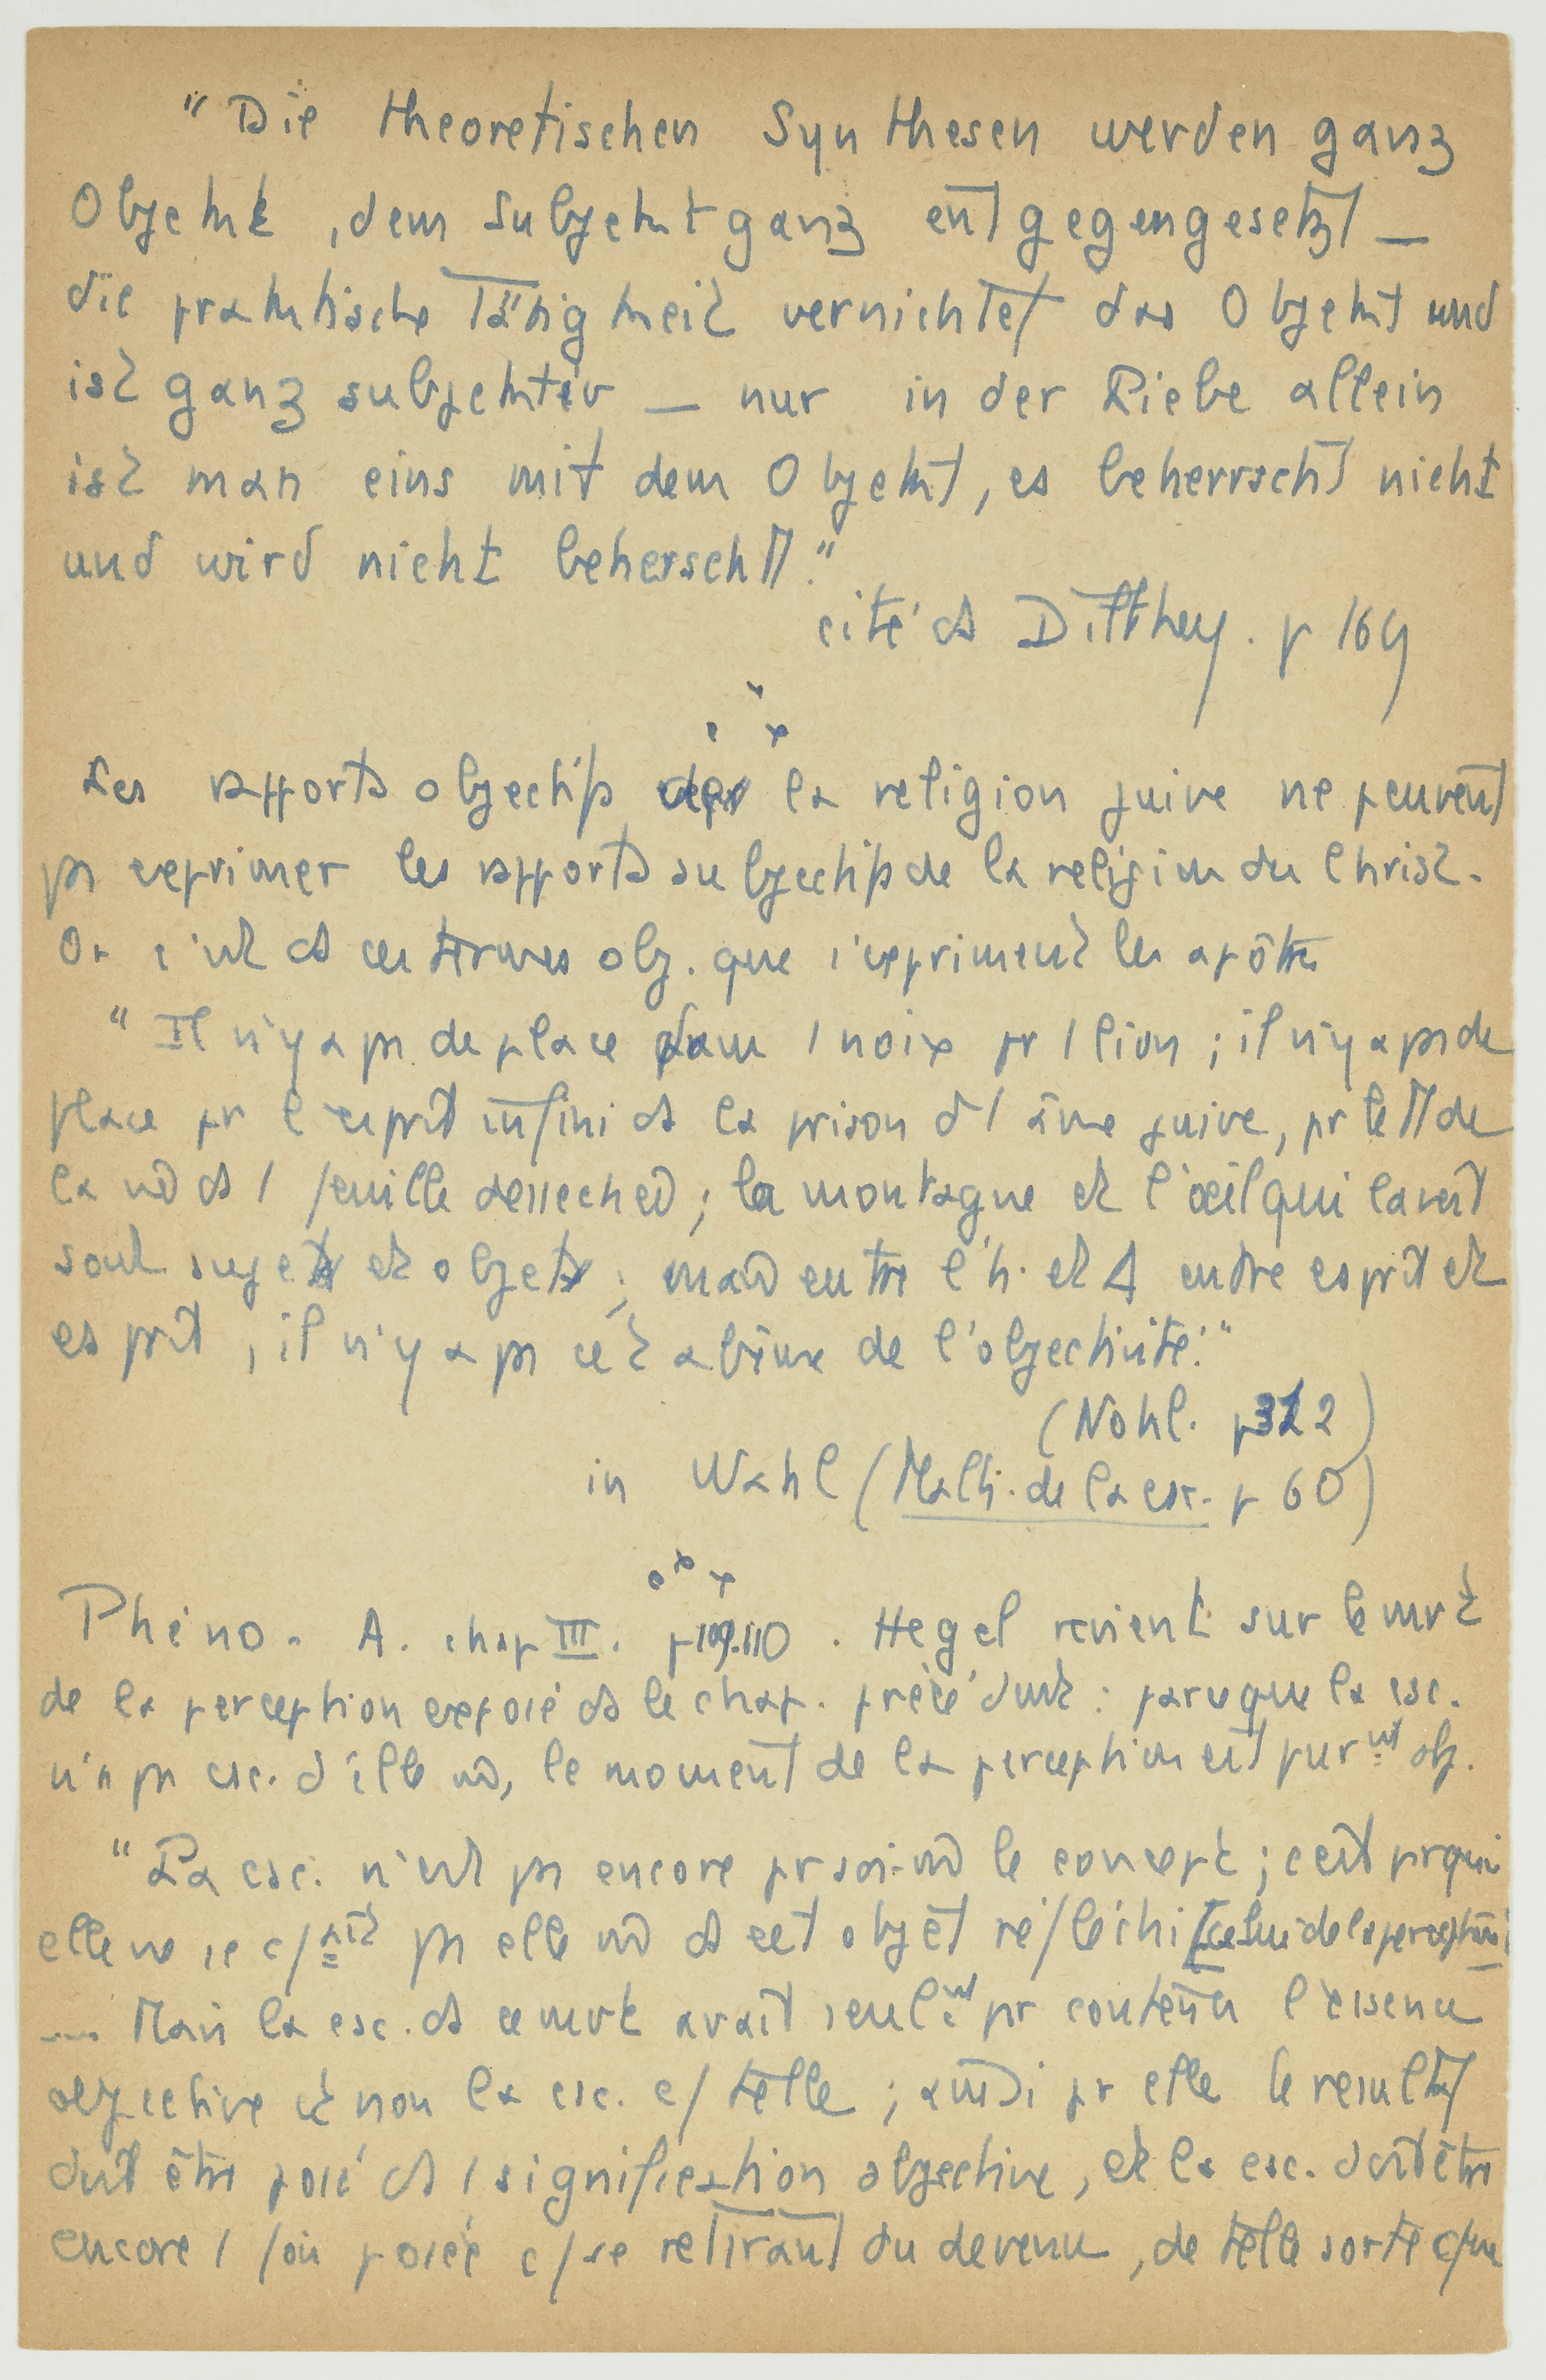 "Die theoretischen Synthesen werden ganz
Objekt, dem Subjekt ganz entgegengesetzt –
die praktische Tätigkeit vernichtet das Objekt und
ist ganz subjektiv – nur in der Liebe allein
ist man eins mit dem Objekt, es beherrscht nicht
und wird nicht beherscht."
cité ds Dilthey. p 169
Les rpports objectifs de la religion juive ne peuvent
ps exprimer les rpports subjectifs de la religion du Christ.
Or c'est ds ces termes obj. que s'expriment les apôtres
"Il n'y a ps de place dans 1 noix pr 1 lion ; il n'y a ps de
place pr l'esprit infini ds la prison d'1 âme juive, pr le tt de
la vie ds 1 feuille desséchée ; la montagne et l'œil qui la voit
sont sujet et objet ; mais entre l'h. et Δ entre esprit et
esprit, il n'y a ps cet abîme de l'objectivité."
(Nohl. p 312)
in Wahl (Malh. de la csc. p 60)
Phéno. A. chap III. p 109-110. Hegel revient sur le mvt
de la perception exposé ds le chap. précédent : parce que la csc.
n'a ps csc. d'elle m̂, le moment de la perception est purmt obj.
"La csc. n'est ps encore pr soi-m̂ le concept ; c'est prquoi
elle ne se c/naît ps elle m̂ ds cet objet réfléchi [celui de la perception]
.... Mais la csc. ds ce mvt avait seulmt pr contenu l'essence
objective et non la csc. c/ telle ; aussi pr elle le résultat
doit être posé ds 1 signification objective, et la csc. doit être
encore 1 fois posée c/ se retirant du devenu, de telle sorte que